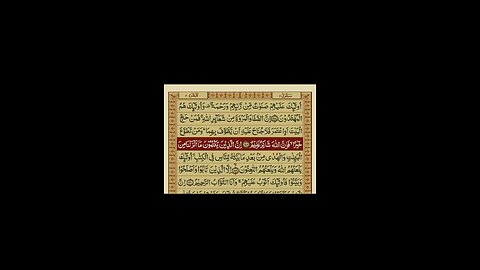 سیقول ۲
البقرة ۲
اُولٰٓئِكَ عَلَیْهِمْ صَلَوٰتٌ مِّنْ رَّبِّهِمْ وَرَحْمَةٌ وَاُولٰٓئِكَ هُمُ
الْمُهْتَدُوْنَ اِنَّ الصَّفَا وَالْمَرْوَةَ مِنْ شَعَآئِرِ اللّٰهِ فَمَنْ حَجَّ
الْبَیْتَ اَوِ اعْتَمَرَ فَلَا جُنَاحَ عَلَیْهِ اَنْ یَّطَّوَّفَ بِهِمَا وَمَنْ تَطَوَّعَ
خَیْرًا فَاِنَّ اللّٰهَ شَاكِرٌ عَلِیْمٌ اِنَّ الَّذِیْنَ یَكْتُمُوْنَ مَاۤ اَنْزَلْنَا مِنَ
الْبَیِّنٰتِ وَالْهُدٰی مِنْۢ بَعْدِ مَا بَیَّنّٰهُ لِلنَّاسِ فِی الْكِتٰبِ اُولٰٓئِكَ
یَلْعَنُهُمُ اللّٰهُ وَیَلْعَنُهُمُ اللّٰعِنُوْنَ اِلَّا الَّذِیْنَ تَابُوْا وَاَصْلَحُوْا
وَبَیَّنُوْا فَاُولٰٓئِكَ اَتُوْبُ عَلَیْهِمْ وَاَنَا التَّوَّابُ الرَّحِیْمُ اِنَّ